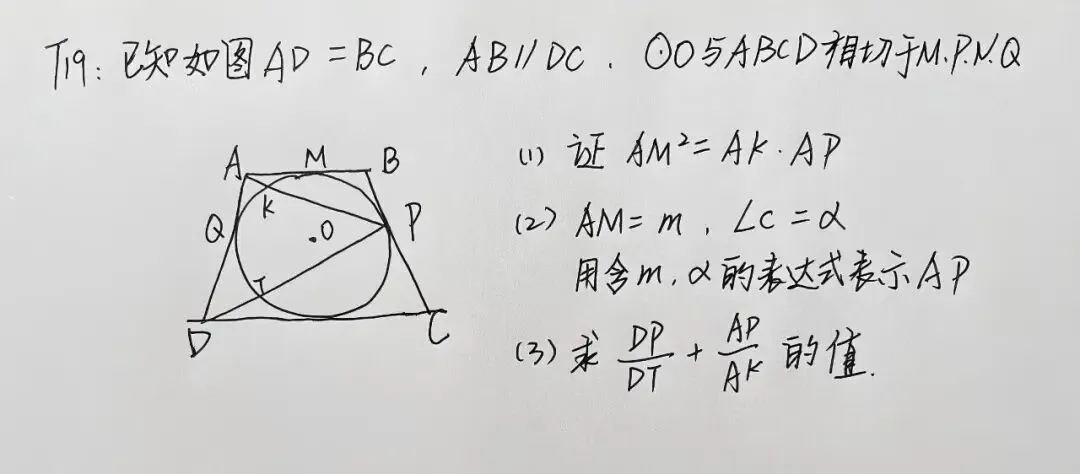 T19: 已知如图AD=BC, AB//DC. ⊙O与ABCD相切于M.P.N.Q
(1) 证 AM²=AK·AP
(2) AM=m, ∠C=α
用含m, α的表达式表示AP
(3) 求 DP/DT + AP/AK 的值.
A M B
K
Q O P
T
D C